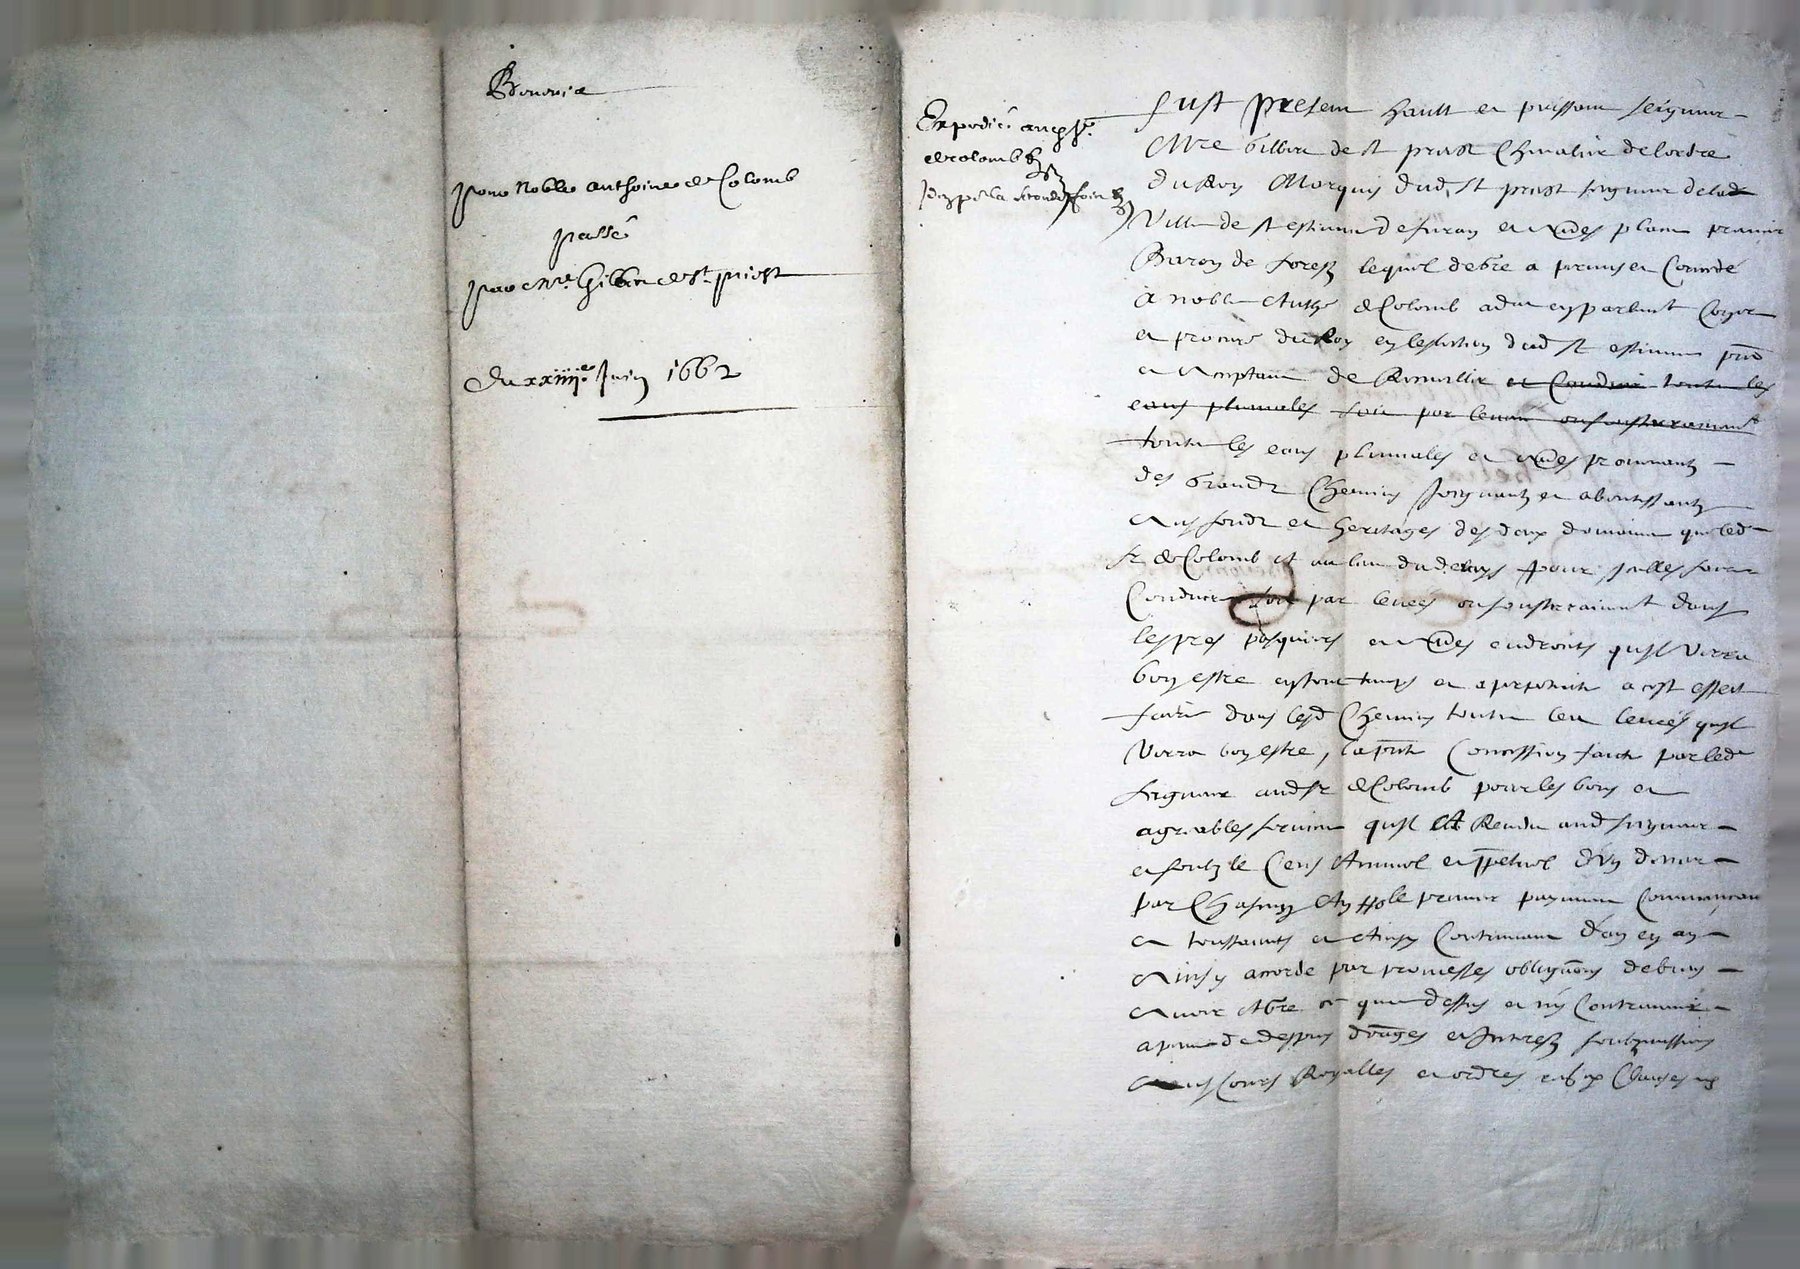 pour noble anthoine de Colomb
passé
par Mre Gilbert de St priest
du xxiiiie Juin 1662
Expedié aud sr
de Colomb
seconde fois
fust present hault et puissant seigneur
Mre Gilbert de St priest Chevalier de lordre
du Roy Marquis dud St priest seigneur de lad
Ville de St estienne de furan et aues places premier
Baron de forestz lequel de gre a permis et Concedé
à noble Anthe de Colomb adat en parlemt Coner
et procure du Roy en leslection dud St estienne pnt
et acceptant de et Conduire toutes les
eaus pluuiales soit par leuees ou sousterrainemt
toutes les eaus pluuiales et aues prouenantz
des grandz Chemins Joignantz et aboutissantz
aus fondz et heritages des deux domaines que led
sr de Colomb at au lieu du pour Icelles faire
Conduire soit par leuees ou sousterrainemt dans
les pres pasquiers et aues endroits qu'il verra
bon estre en tout temps et a perpetuité a cest effect
faire dans lesd Chemins toutes les leuees quil
Verra bon estre, la pnt Concession faicte par led
seigneur aud sr de Colomb pour les bons et
agreables seruices quil At Rendu aud seigneur
et soubz le Cens Annuel et ppetuel d'un denier
par Chascung An le premier payement Commencant
a toussaincts et Ainsy Continuant d'an en an
Ainsy accorde par promesses obligaons de bien
Auoir Agre ce que dessus et ny Contreuenir
a peine de despens doages et Interestz soubzmissions
Cours Royalles et ordres Clauses